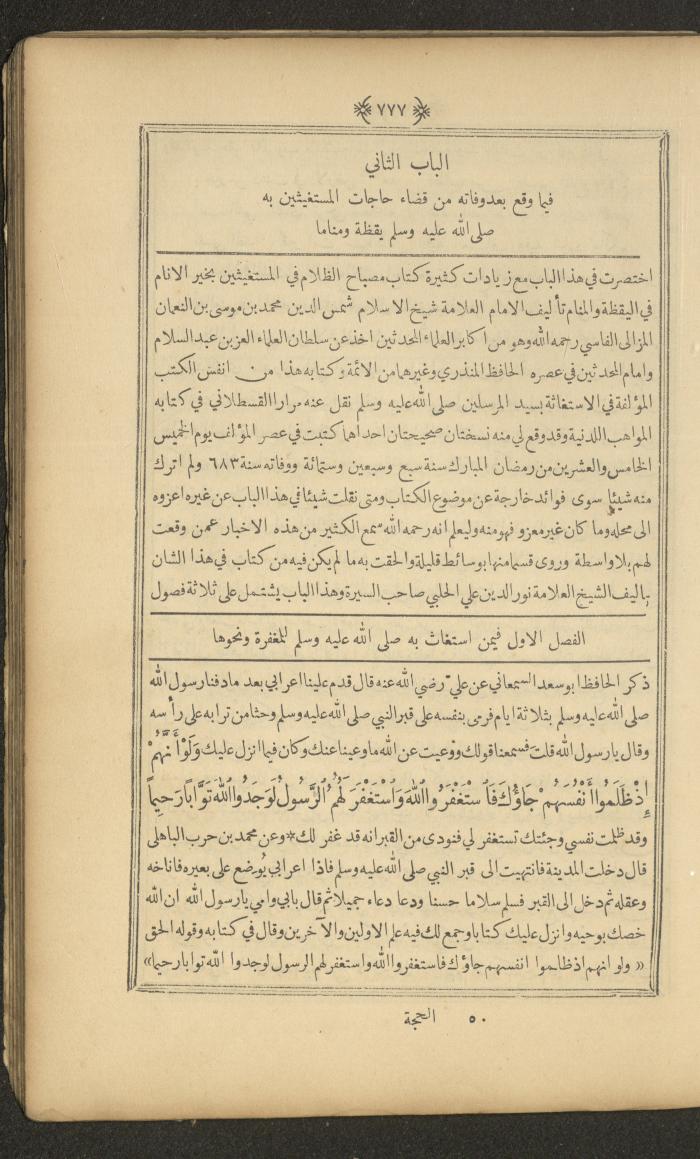 ٧٧٧
الباب الثاني
فيما وقع بعد وفاته من قضاء حاجات المستغيثين به
صلى الله عليه وسلم يقظة ومناما
اختصرت في هذا الباب مع زيادات كثيرة كتاب مصباح الظلام في المستغيثين بخير الانام
في اليقظة والمنام تأليف الامام العلامة شيخ الاسلام شمس الدين محمد بن موسى بن النعمان
المزالى الفاسي رحمه الله وهو من اكابر العلماء المحدثين اخذ عن سلطان العلماء العز بن عبد السلام
وامام المحدثين في عصره الحافظ المنذري وغيرهما من الائمة وكتابه هذا من انفس الكتب
المؤلفة في الاستغاثة بسيد المرسلين صلى الله عليه وسلم نقل عنه مرارا القسطلاني في كتابه
المواهب اللدنية وقد وقع لي منه نسختان صحيحتان احداهما كتبت في عصر المؤلف يوم الخميس
الخامس والعشرين من رمضان المبارك سنة سبع وسبعين وستمائة ووفاته سنة ٦٨٣ ولم اترك
منه شيئا سوى فوائد خارجة عن موضوع الكتاب ومتى نقلت شيئا في هذا الباب عن غيره اعزوه
الى محله وما كان غير معزو فهو منه وليعلم انه رحمه الله سمع الكثير من هذه الاخبار عمن وقعت
لهم بلا واسطة وروى قسما منها بوسائط قليلة والحقت به ما لم يكن فيه من كتاب في هذا الشان
تاليف الشيخ العلامة نور الدين علي الحلبي صاحب السيرة وهذا الباب يشتمل على ثلاثة فصول
الفصل الاول فيمن استغاث به صلى الله عليه وسلم للمغفرة ونحوها
ذكر الحافظ ابو سعد السمعاني عن عليّ رضي الله عنه قال قدم علينا اعرابي بعد مادفنا رسول الله
صلى الله عليه وسلم بثلاثة ايام فرمى بنفسه على قبر النبي صلى الله عليه وسلم وحثا من ترابه على رأسه
وقال يا رسول الله قلت فسمعنا قولك ووعيت عن الله ما وعينا عنك وكان فيما انزل عليك وَلَوْ أَنَّهُمْ
إِذْ ظَلَمُوا أَنْفُسَهُمْ جَاؤُكَ فَاسْتَغْفَرُوا اللهَ وَاسْتَغْفَرَ لَهُمُ الرَّسُولُ لَوَجَدُوا اللهَ تَوَّابًا رَحِيمًا
وقد ظلمت نفسي وجئتك تستغفر لي فنودى من القبر انه قد غفر لك * وعن محمد بن حرب الباهلى
قال دخلت المدينة فانتهيت الى قبر النبي صلى الله عليه وسلم فاذا اعرابي يُوضع على بعيره فاناخه
وعقله ثم دخل الى القبر فسلم سلاما حسنا ودعا دعاء جميلا ثم قال بابي وامي يا رسول الله ان الله
خصك بوحيه وانزل عليك كتابا وجمع لك فيه علم الاولين والآخرين وقال في كتابه وقوله الحق
« ولو انهم اذ ظلموا انفسهم جاؤك فاستغفروا الله واستغفر لهم الرسول لوجدوا الله توابا رحيما»
٥٠ الحجة